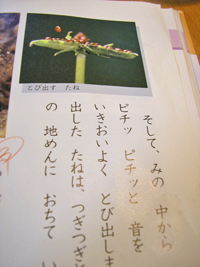 とび出す　たね
そして、みの　中から
ピチッ　ピチッと　音を
いきおいよく　とび出しま
出した　たねは、つぎつぎと
の　地めんに　おちて　い